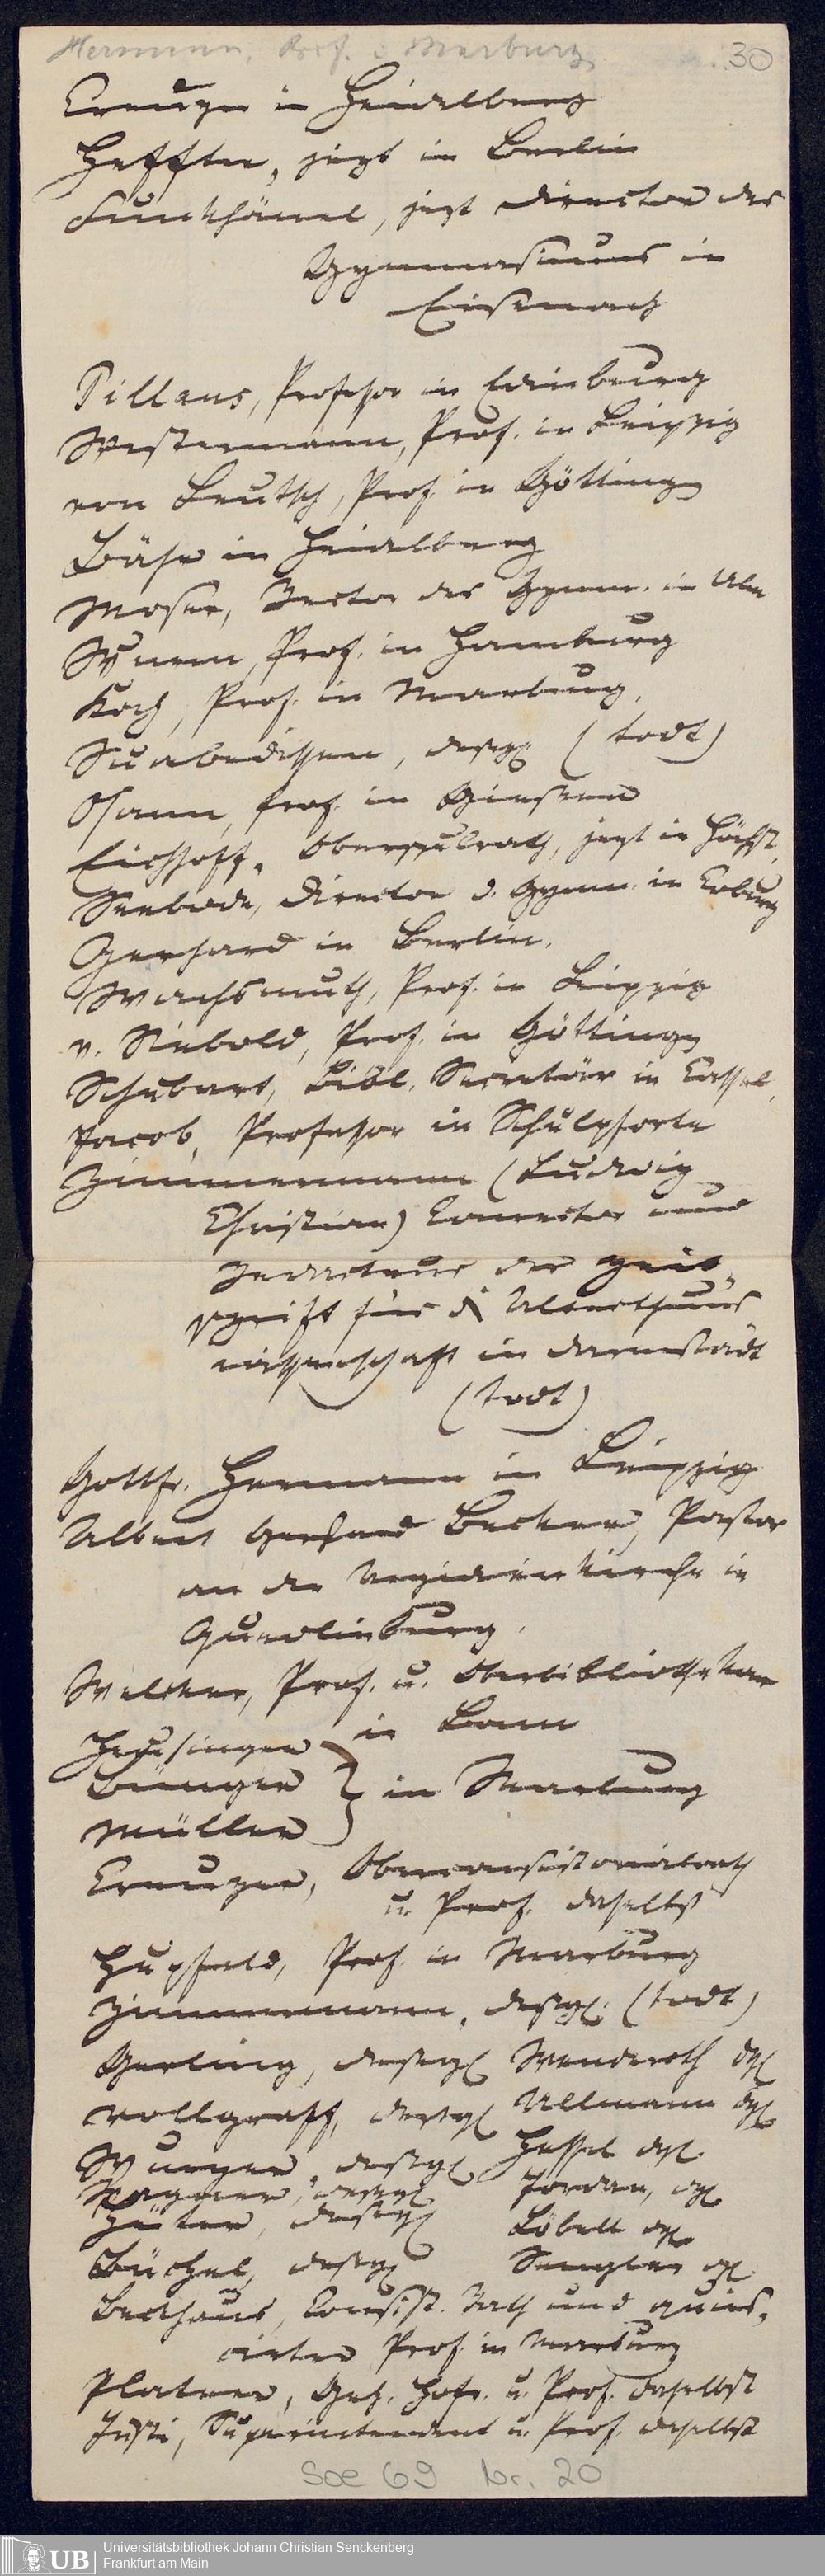 Hermann, Prof. in Marburg
30
Creuzer in Heidelberg
Heffter, jezt in Berlin
Funkhänel, jezt Director des
Gymnasiums in
Eisenach
Pillans, Professor in Edinburg
Westermann, Prof. in Leipzig
von Leutsch, Prof. in Göttingen
Bähr in Heidelberg
Moser, Rector des Gymn. in Ulm
Wurm, Prof. in Hamburg
Koch, Prof. in Marburg,
Suabedissen, desgl. (todt)
Osann, Prof. in Giessen
Eichhoff, Oberschulrath, jezt in Höchst,
Seebode, Director d. Gymn. in Coburg
Gerhard in Berlin.
Wachsmuth, Prof. in Leipzig
v. Siebold, Prof. in Göttingen
Schubart, Bibl. Secretär in Cassel,
Jacob, Professor in Schulpforte
Zimmermann (Ludwig
Christian) Conrector und
Redacteur der Zeit
schrift für die Alterthums
wissenschaft in Darmstadt
(todt)
Gottfr. Hermann in Leipzig
Albert Gerhard Becker, Pastor
an der Aegidienkirche in
Quedlinburg.
Welcker, Prof. u. Oberbibliothekar
in Bonn
Heusinger
Bünger } in Marburg
Müller
Creuzer, Oberconsistorialrath
u. Prof. daselbst
Hupfeld, Prof. in Marburg
Zimmermann, desgl. (todt)
Gerling, desgl. Wenderoth dgl.
Vollgraff, desgl. Ullmann dgl.
Wurzer, desgl. Hessel dgl.
Wagner, desgl. Jordan, dgl.
Hüter, desgl. Löbell dgl.
Büchel, desgl. Sengler dgl.
Beckhaus, Consist. Rath und quies,
cirter Prof. in Marburg
Platner, Geh. Hofr. u. Prof. daselbst
Justi, Superintendent u. Prof. daselbst
Soe 69 Nr. 20
UB Universitätsbibliothek Johann Christian Senckenberg
Frankfurt am Main